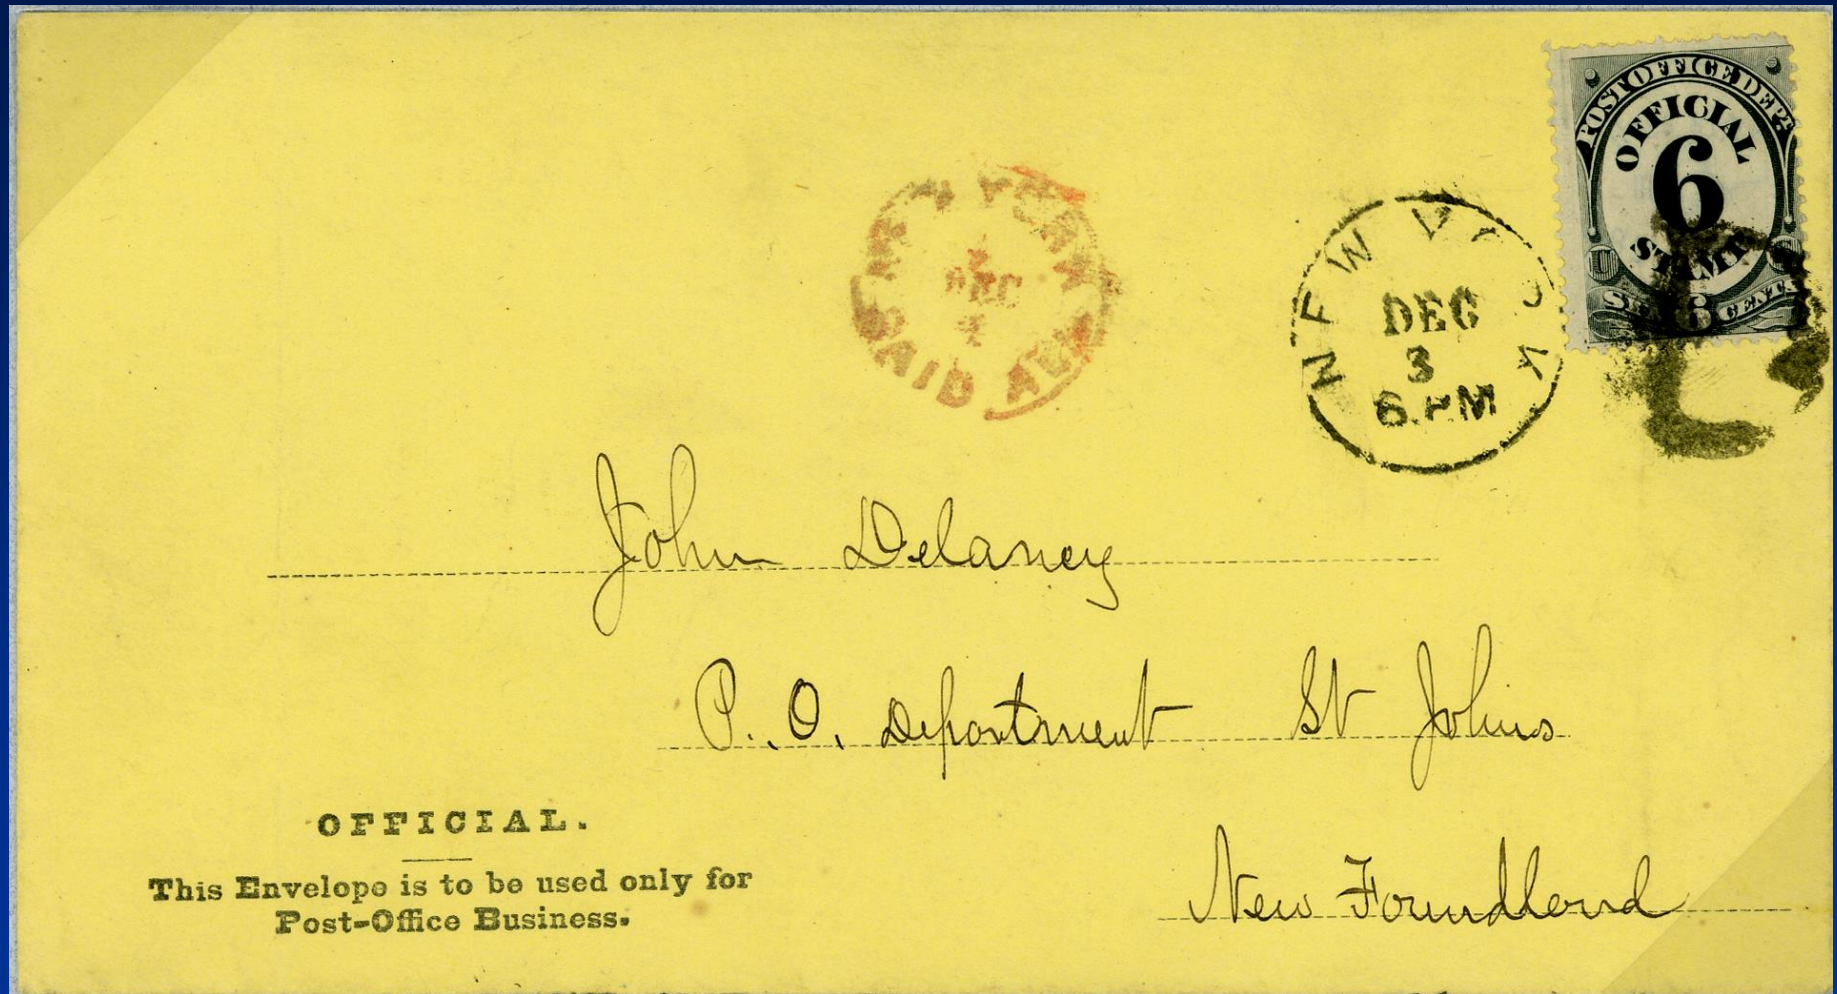 POST OFFICE DEPT.
OFFICIAL
6
STAMP
U S
SIX 6 CENTS
NEW YORK
DEC
PAID ALL
NEW YORK
DEC
3
6.PM
John Delaney
P.O. Department St Johns
New Foundland
OFFICIAL.
This Envelope is to be used only for
Post-Office Business.